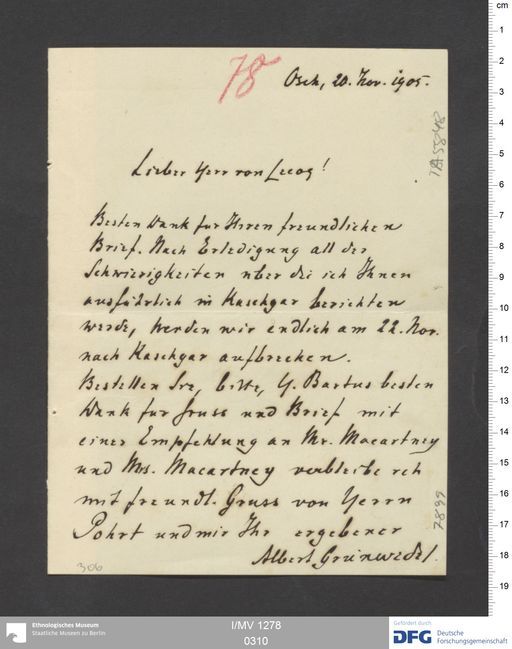 78
Osch, 20. Nov. 1905.
TA 5848
Lieber Herr von Lecoq!
Besten Dank für Ihren freundlichen
Brief. Nach Erledigung all der
Schwierigkeiten über die ich Ihnen
ausführlich in Kaschgar berichten
werde, werden wir endlich am 22. Nov.
nach Kaschgar aufbrechen.
Bestellen Sie, bitte, H. Bartus besten
Dank für Gruss und Brief mit
einer Empfehlung an Mr. Macartney
und Mrs. Macartney verbleibe ich
mit freundl. Gruss von Herrn
Pohrt und mir Ihr ergebener
Albert Grünwedel.
7899
306
cm
1
2
3
4
5
6
7
8
9
10
11
12
13
14
15
16
17
18
19
Ethnologisches Museum
Staatliche Museen zu Berlin
I/MV 1278
0310
Gefördert durch
DFG Deutsche
Forschungsgemeinschaft